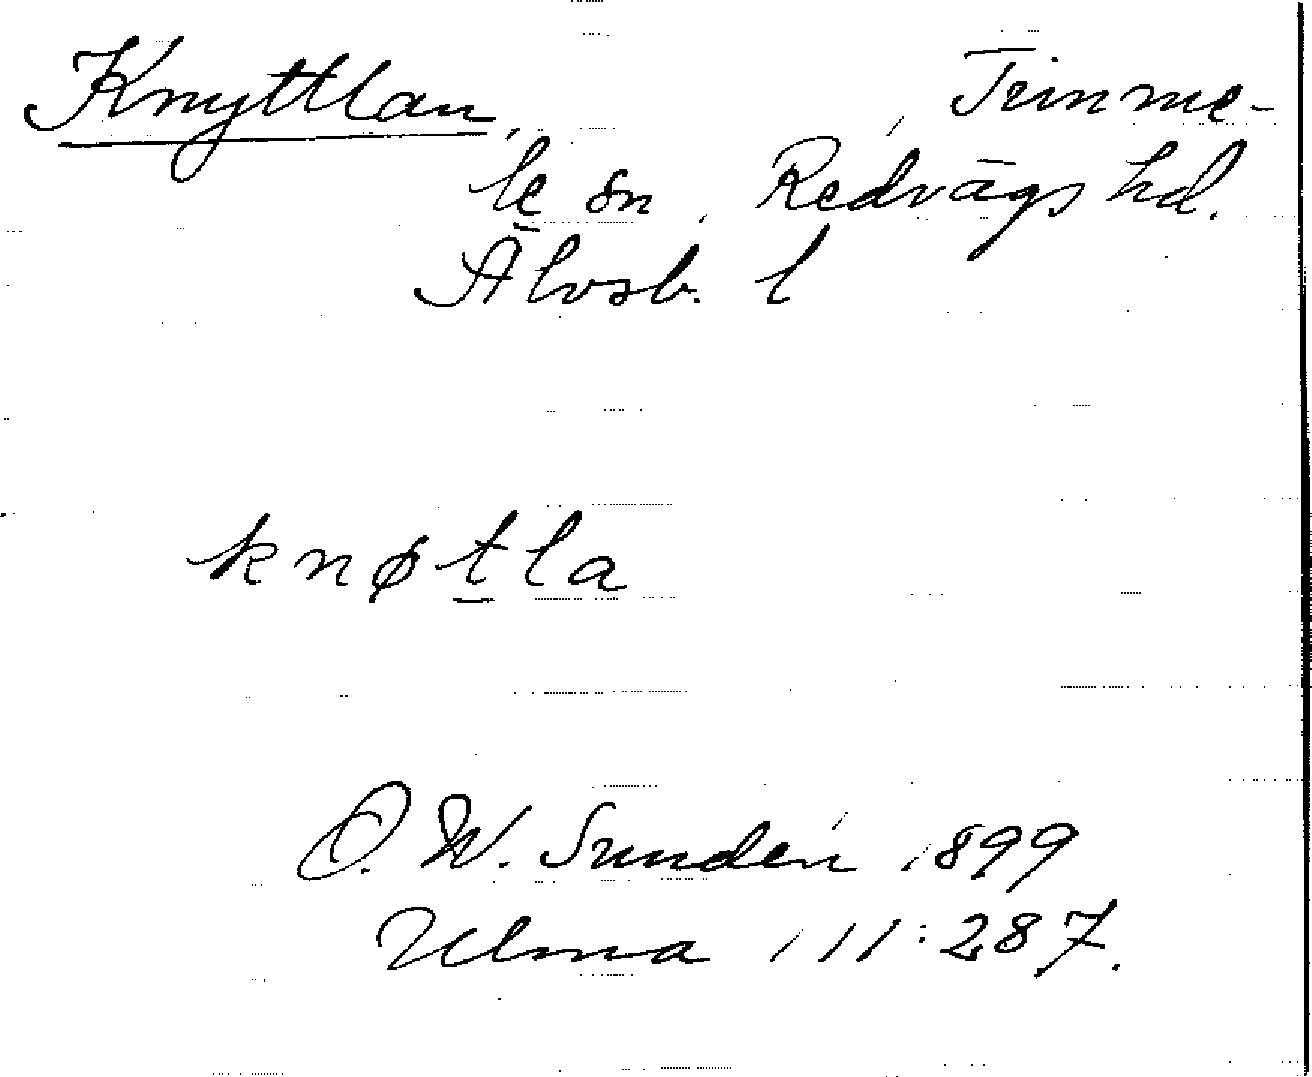 Knyttlan, Timme-
le sn, Redvägs hd.
Älvsb. l
knøtla
O. W. Sundén 1899
Ulma 111:287.